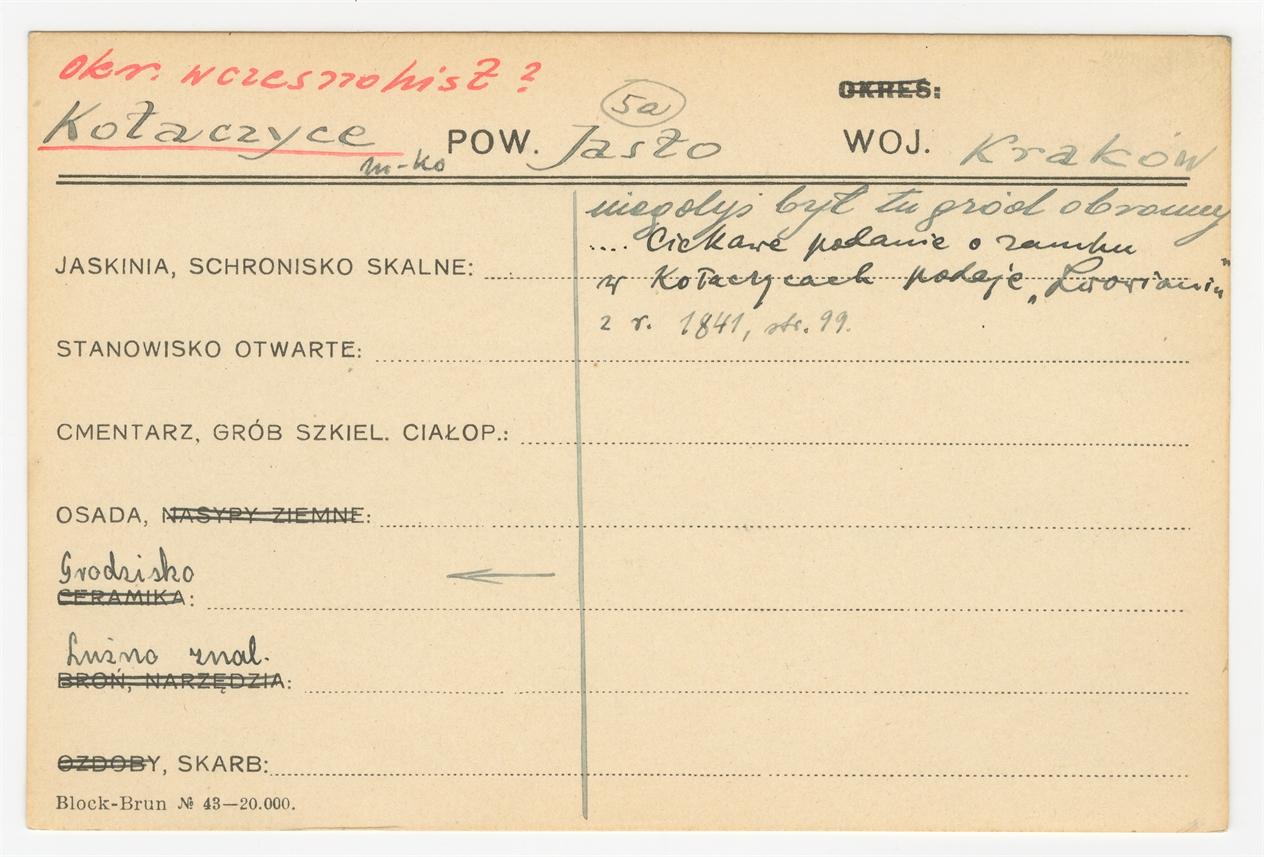 okr. wczesnohist ?
OKRES:
5a
Kołaczyce POW. Jasło WOJ. Kraków
m-ko
niegdyś był tu gród obronny
.... Ciekawe podanie o zamku
JASKINIA, SCHRONISKO SKALNE:
w Kołaczycach podaje „Lwowianin"
z r. 1841, str. 99.
STANOWISKO OTWARTE:
CMENTARZ, GRÓB SZKIEL. CIAŁOP.:
OSADA, NASYPY ZIEMNE:
Grodzisko
CERAMIKA:
Luźno znal.
BROŃ, NARZĘDZIA:
OZDOBY, SKARB:
Block-Brun № 43—20.000.